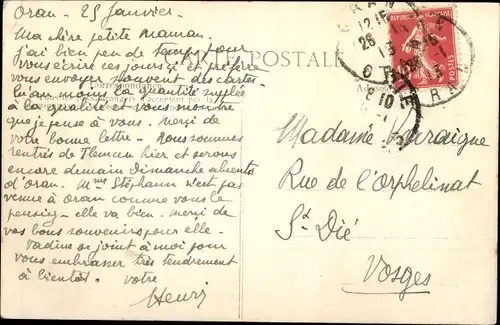 Oran. 25 Janvier.
Ma chère petite Maman.
j'ai bien peu de temps pour
vous écrire ces jours ci et préfère
vous envoyer souvent des cartes
la quantité supplée
à la qualité et vous montre
que je pense à vous. Merci de
votre bonne lettre. Nous sommes
rentrés de Tlemcen hier et serons
encore demain Dimanche absents
d'Oran. Mme Stéphann n'est pas
venue à Oran comme vous le
pensiez - elle va bien. Merci de
vos bons souvenirs pour elle.
Nadine se joint à moi pour
vous embrasser très tendrement
à bientôt. Votre
Henri
CARTE POSTALE
Correspondance
ORAN
12 15
26
13
REPUBLIQUE FRANÇAISE
POSTES
Madame
Rue de l'Orphelinat
St Dié
Vosges